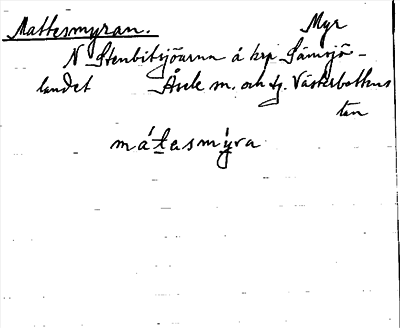 Mattesmyran. Myr
N Stenbitsjöarna å krp Sämsjö-
landet Åsele m. och tg. Västerbottens
län
mátasmýra